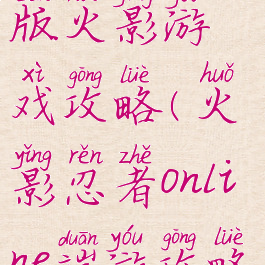 版火影游
xì gōng lüè huǒ
戏攻略(火
yǐng rěn zhě
影忍者onli
duān yóu gōng lüè
ne端游攻略